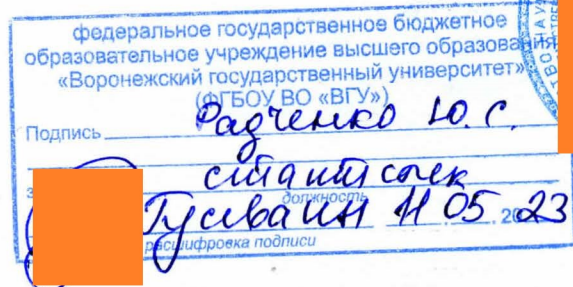 федеральное государственное бюджетное
образовательное учреждение высшего образования
«Воронежский государственный университет»
(ФГБОУ ВО «ВГУ»)
Подпись Радченко Ю.С.
должность
11 05 2023
расшифровка подписи